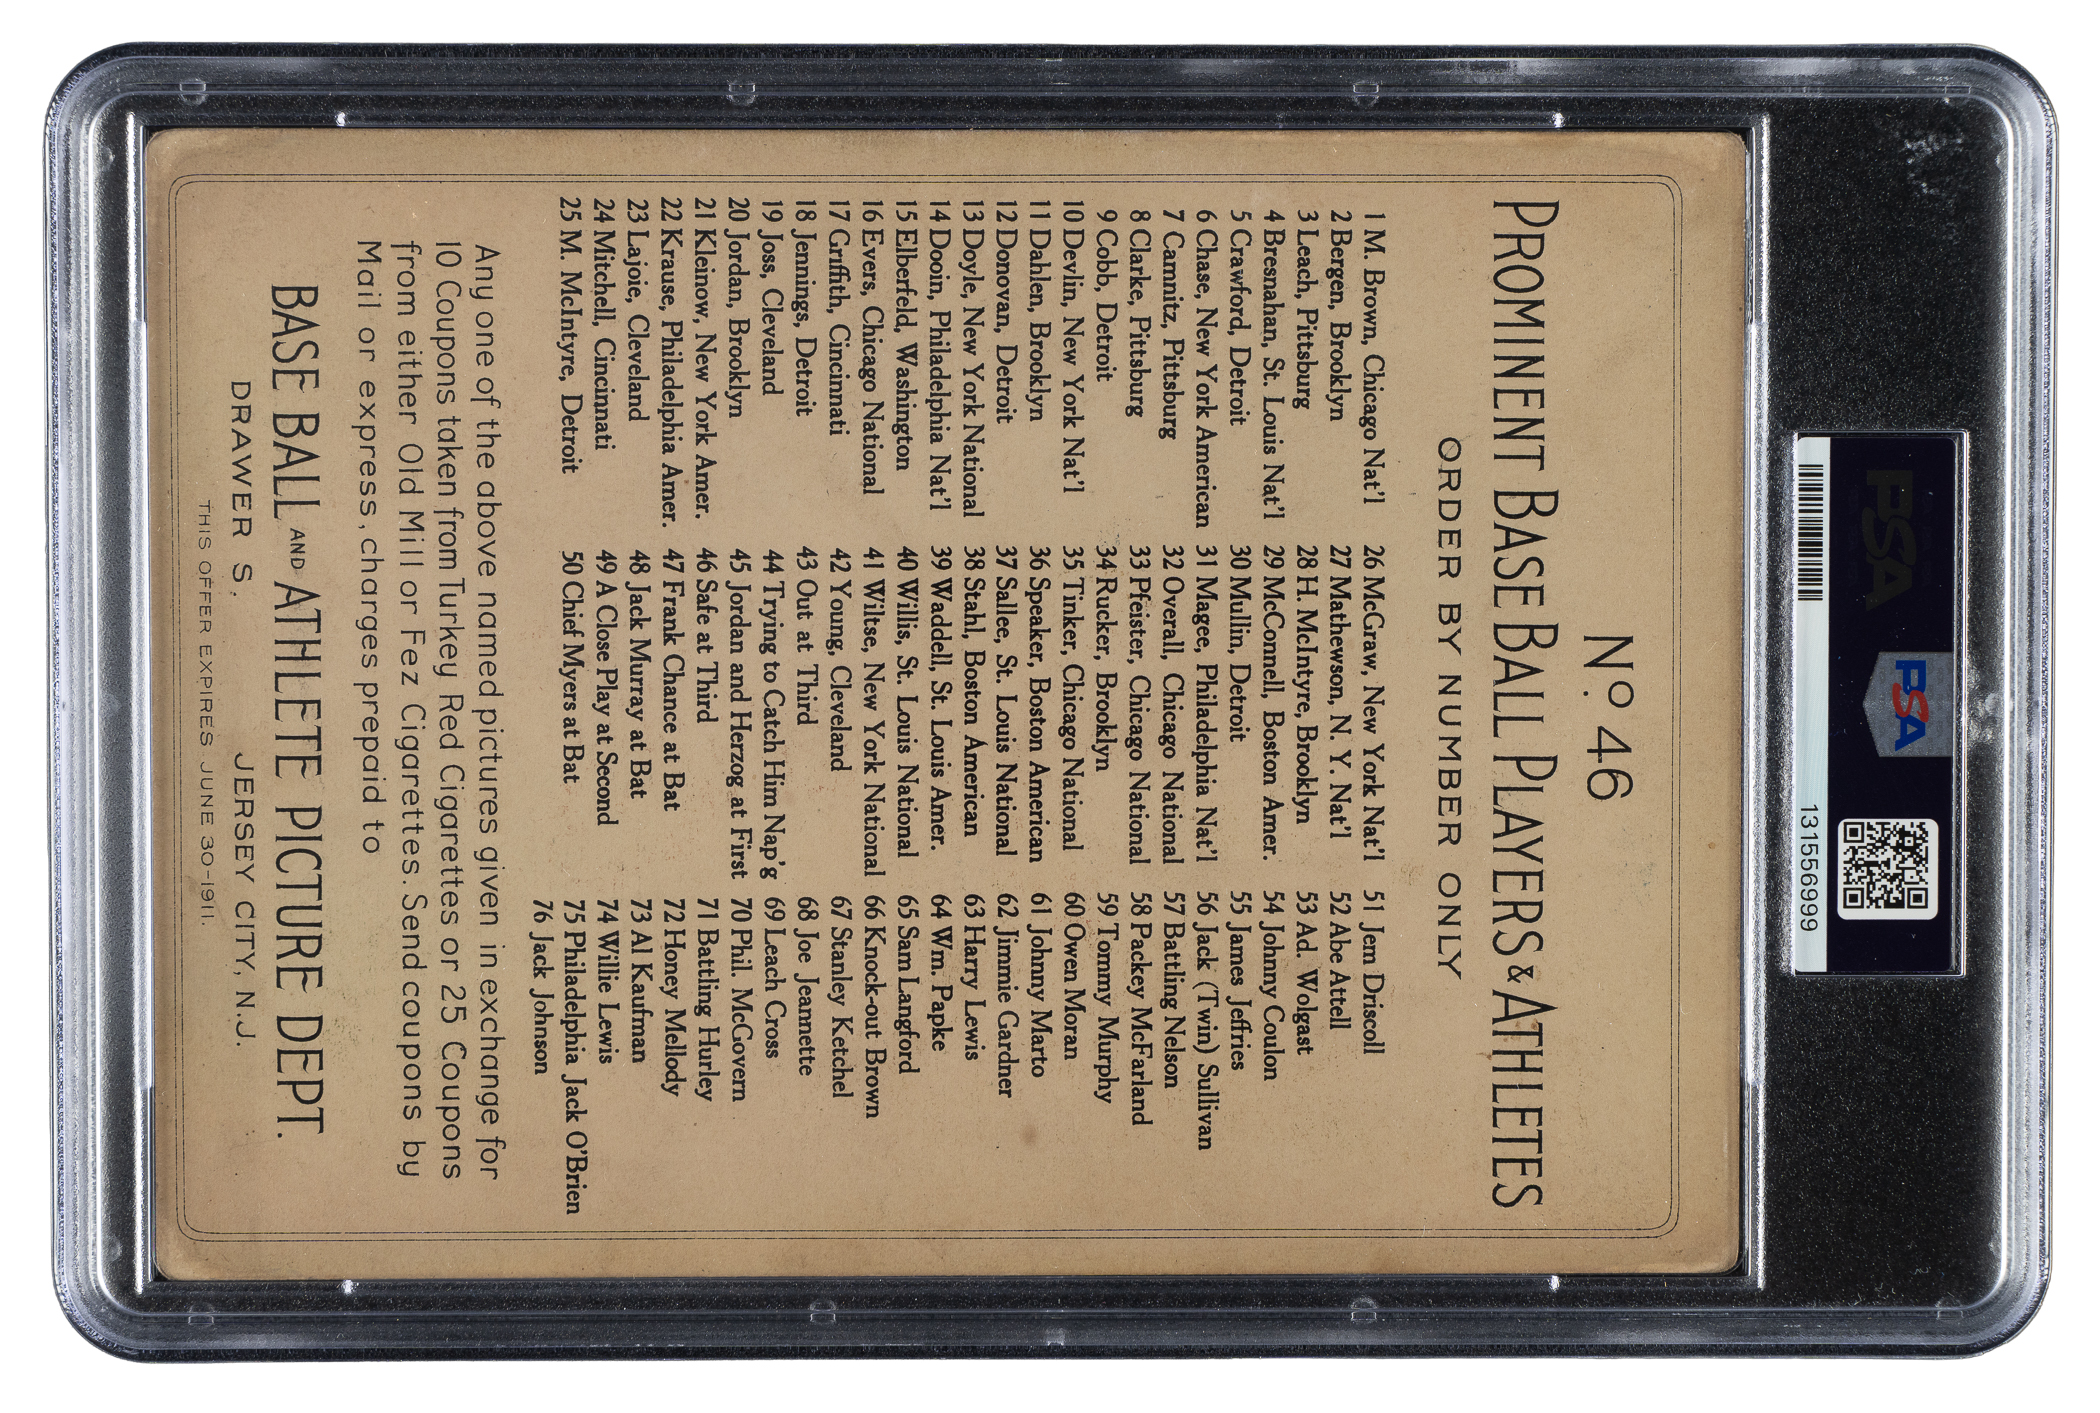 PSA
PSA
131556999
No. 46
PROMINENT BASE BALL PLAYERS & ATHLETES
ORDER BY NUMBER ONLY
1 M. Brown, Chicago Nat'l
2 Bergen, Brooklyn
3 Leach, Pittsburg
4 Bresnahan, St. Louis Nat'l
5 Crawford, Detroit
6 Chase, New York American
7 Camnitz, Pittsburg
8 Clarke, Pittsburg
9 Cobb, Detroit
10 Devlin, New York Nat'l
11 Dahlen, Brooklyn
12 Donovan, Detroit
13 Doyle, New York National
14 Dooin, Philadelphia Nat'l
15 Elberfeld, Washington
16 Evers, Chicago National
17 Griffith, Cincinnati
18 Jennings, Detroit
19 Joss, Cleveland
20 Jordan, Brooklyn
21 Kleinow, New York Amer.
22 Krause, Philadelphia Amer.
23 Lajoie, Cleveland
24 Mitchell, Cincinnati
25 M. McIntyre, Detroit
26 McGraw, New York Nat'l
27 Mathewson, N. Y. Nat'l
28 H. McIntyre, Brooklyn
29 McConnell, Boston Amer.
30 Mullin, Detroit
31 Magee, Philadelphia Nat'l
32 Overall, Chicago National
33 Pfeister, Chicago National
34 Rucker, Brooklyn
35 Tinker, Chicago National
36 Speaker, Boston American
37 Sallee, St. Louis National
38 Stahl, Boston American
39 Waddell, St. Louis Amer.
40 Willis, St. Louis National
41 Wiltse, New York National
42 Young, Cleveland
43 Out at Third
44 Trying to Catch Him Nap'g
45 Jordan and Herzog at First
46 Safe at Third
47 Frank Chance at Bat
48 Jack Murray at Bat
49 A Close Play at Second
50 Chief Myers at Bat
51 Jem Driscoll
52 Abe Attell
53 Ad. Wolgast
54 Johnny Coulon
55 James Jeffries
56 Jack (Twin) Sullivan
57 Battling Nelson
58 Packey McFarland
59 Tommy Murphy
60 Owen Moran
61 Johnny Marto
62 Jimmie Gardner
63 Harry Lewis
64 Wm. Papke
65 Sam Langford
66 Knock-out Brown
67 Stanley Ketchel
68 Joe Jeannette
69 Leach Cross
70 Phil. McGovern
71 Battling Hurley
72 Honey Mellody
73 Al Kaufman
74 Willie Lewis
75 Philadelphia Jack O'Brien
76 Jack Johnson
Any one of the above named pictures given in exchange for
10 Coupons taken from Turkey Red Cigarettes or 25 Coupons
from either Old Mill or Fez Cigarettes. Send coupons by
Mail or express, charges prepaid to
BASE BALL AND ATHLETE PICTURE DEPT.
DRAWER S. JERSEY CITY, N.J.
THIS OFFER EXPIRES JUNE 30-1911.